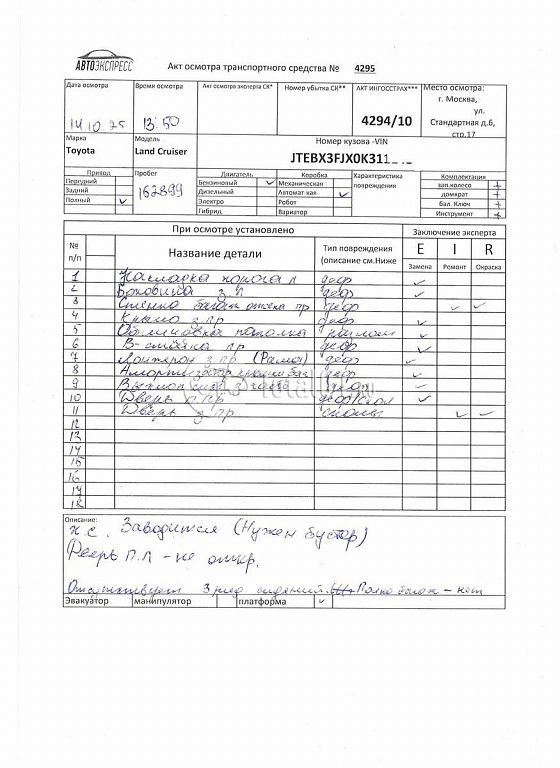 АВТОЭКСПРЕСС
Акт осмотра транспортного средства № 4295
Дата осмотра Время осмотра Акт осмотра эксперта СК* Номер убытка СК** АКТ ИНГОССТРАХ*** Место осмотра:
г. Москва,
ул.
14 10 25 13:50 4294/10 Стандартная д.6,
стр.17
Марка Модель Номер кузова -VIN
Toyota Land Cruiser JTEBX3FJX0K311
Привод Пробег Двигатель Коробка Характеристика Комплектация
Передний 162899 Бензиновый ✓ Механическая повреждения зап.колесо +
Задний Дизельный Автомат кая ✓ домкрат +
Полный ✓ Электро Робот бал. Ключ +
Гибрид Вариатор Инструмент +
При осмотре установлено Заключение эксперта
№ п/п Название детали Тип повреждения (описание см.Ниже E I R
Замена Ремонт Окраска
1 Накладка порога л деф ✓
2 Боковина з л деф ✓
3 Стенка багаж отсека пр деф ✓ ✓
4 Крыло з пр деф ✓
5 Облицовка потолка ✓
6 В-стойка пр деф ✓
7 Лонжерон з пр (Рама) деф ✓
8 Амортизатор крышки баг деф ✓
9 деф ✓
10 Дверь п пр ✓
11 Дверь з пр сколы ✓ ✓
12
13
14
15
16
17
18
Описание:
х.с. Заводится (Нужен бустер)
Дверь п.л - не откр.
Отсутствует 3 ряд сидений. Полка багаж - нет
Эвакуатор манипулятор платформа ✓